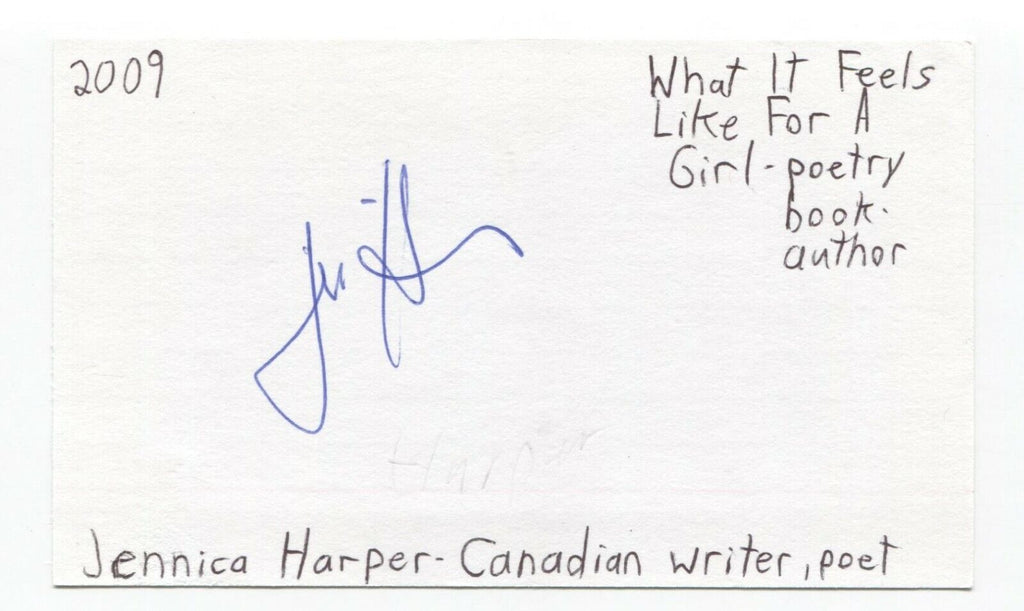 2009
What It Feels
Like For A
Girl-poetry
book.
author
Harper
Jennica Harper-Canadian writer, poet